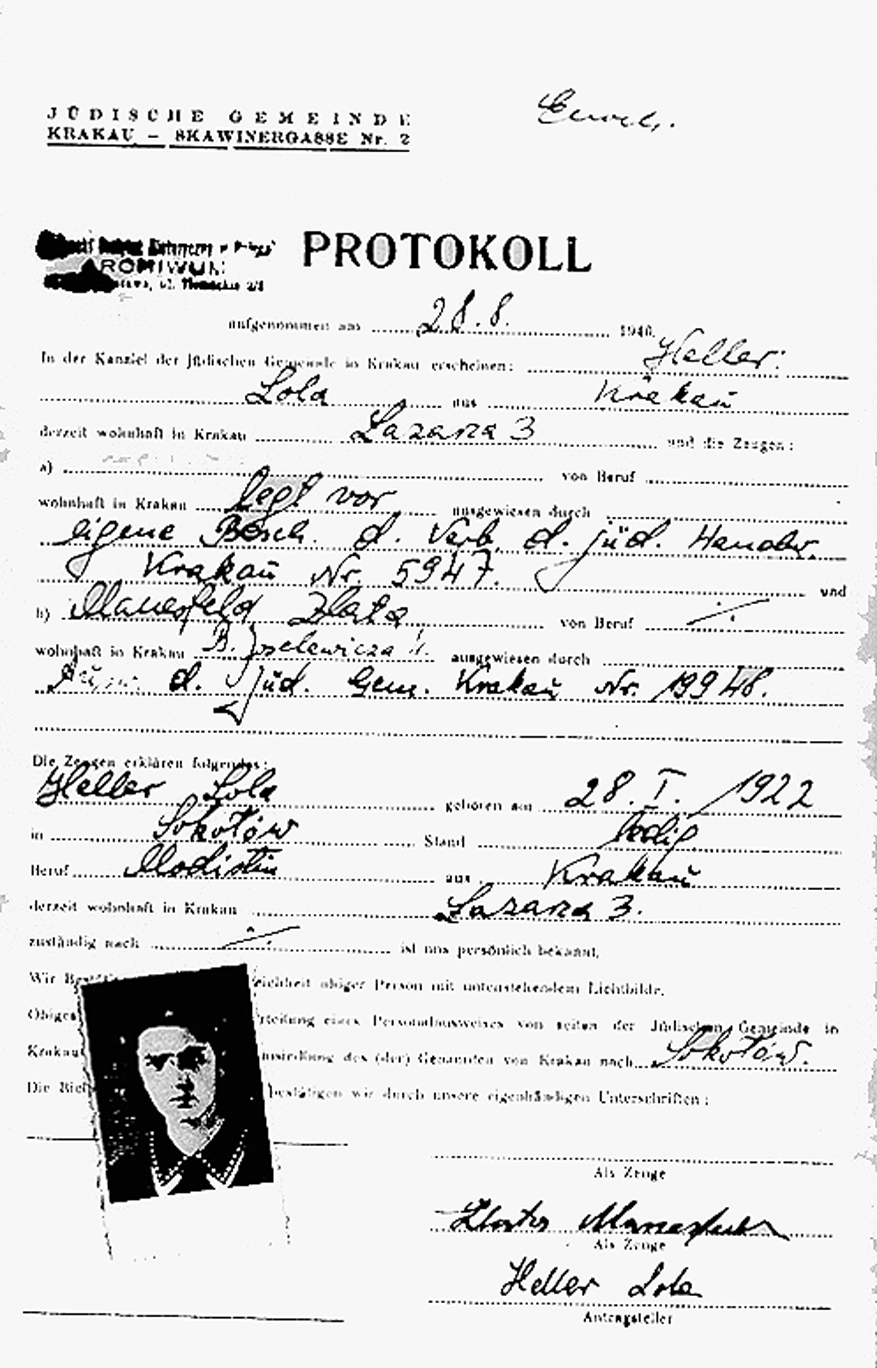 JÜDISCHE GEMEINDE
KRAKAU – SKAWINERGASSE Nr. 2
PROTOKOLL
aufgenommen am 28.8. 1940.
In der Kanzlei der jüdischen Gemeinde in Krakau erscheinen: Heller
Lola aus Krakau
derzeit wohnhaft in Krakau Lazarza 3 und die Zeugen:
a) von Beruf
wohnhaft in Krakau legt vor ausgewiesen durch
eigene Besch. d. Verb. d. jüd.
Krakau Nr. 5947. und
b) Manesfeld Zlata von Beruf ./.
wohnhaft in Krakau B. Joselewicza ausgewiesen durch
d. Jüd. Gem. Krakau Nr. 19948.
Die Zeugen erklären folgendes:
Heller Lola geboren am 28. I. 1922
in Sokołów Stand ledig
Beruf Modistin aus Krakau
derzeit wohnhaft in Krakau Lazarza 3.
zuständig nach ./. ist uns persönlich bekannt.
Wir obiger Person mit untenstehendem Lichtbilde.
Obiges eines Personalausweises von seiten der Jüdischen Gemeinde in
Krakau des (der) Genannten von Krakau nach Sokołów.
Die bestätigen wir durch unsere eigenhändigen Unterschriften:
Als Zeuge
Als Zeuge
Heller Lola
Antragsteller